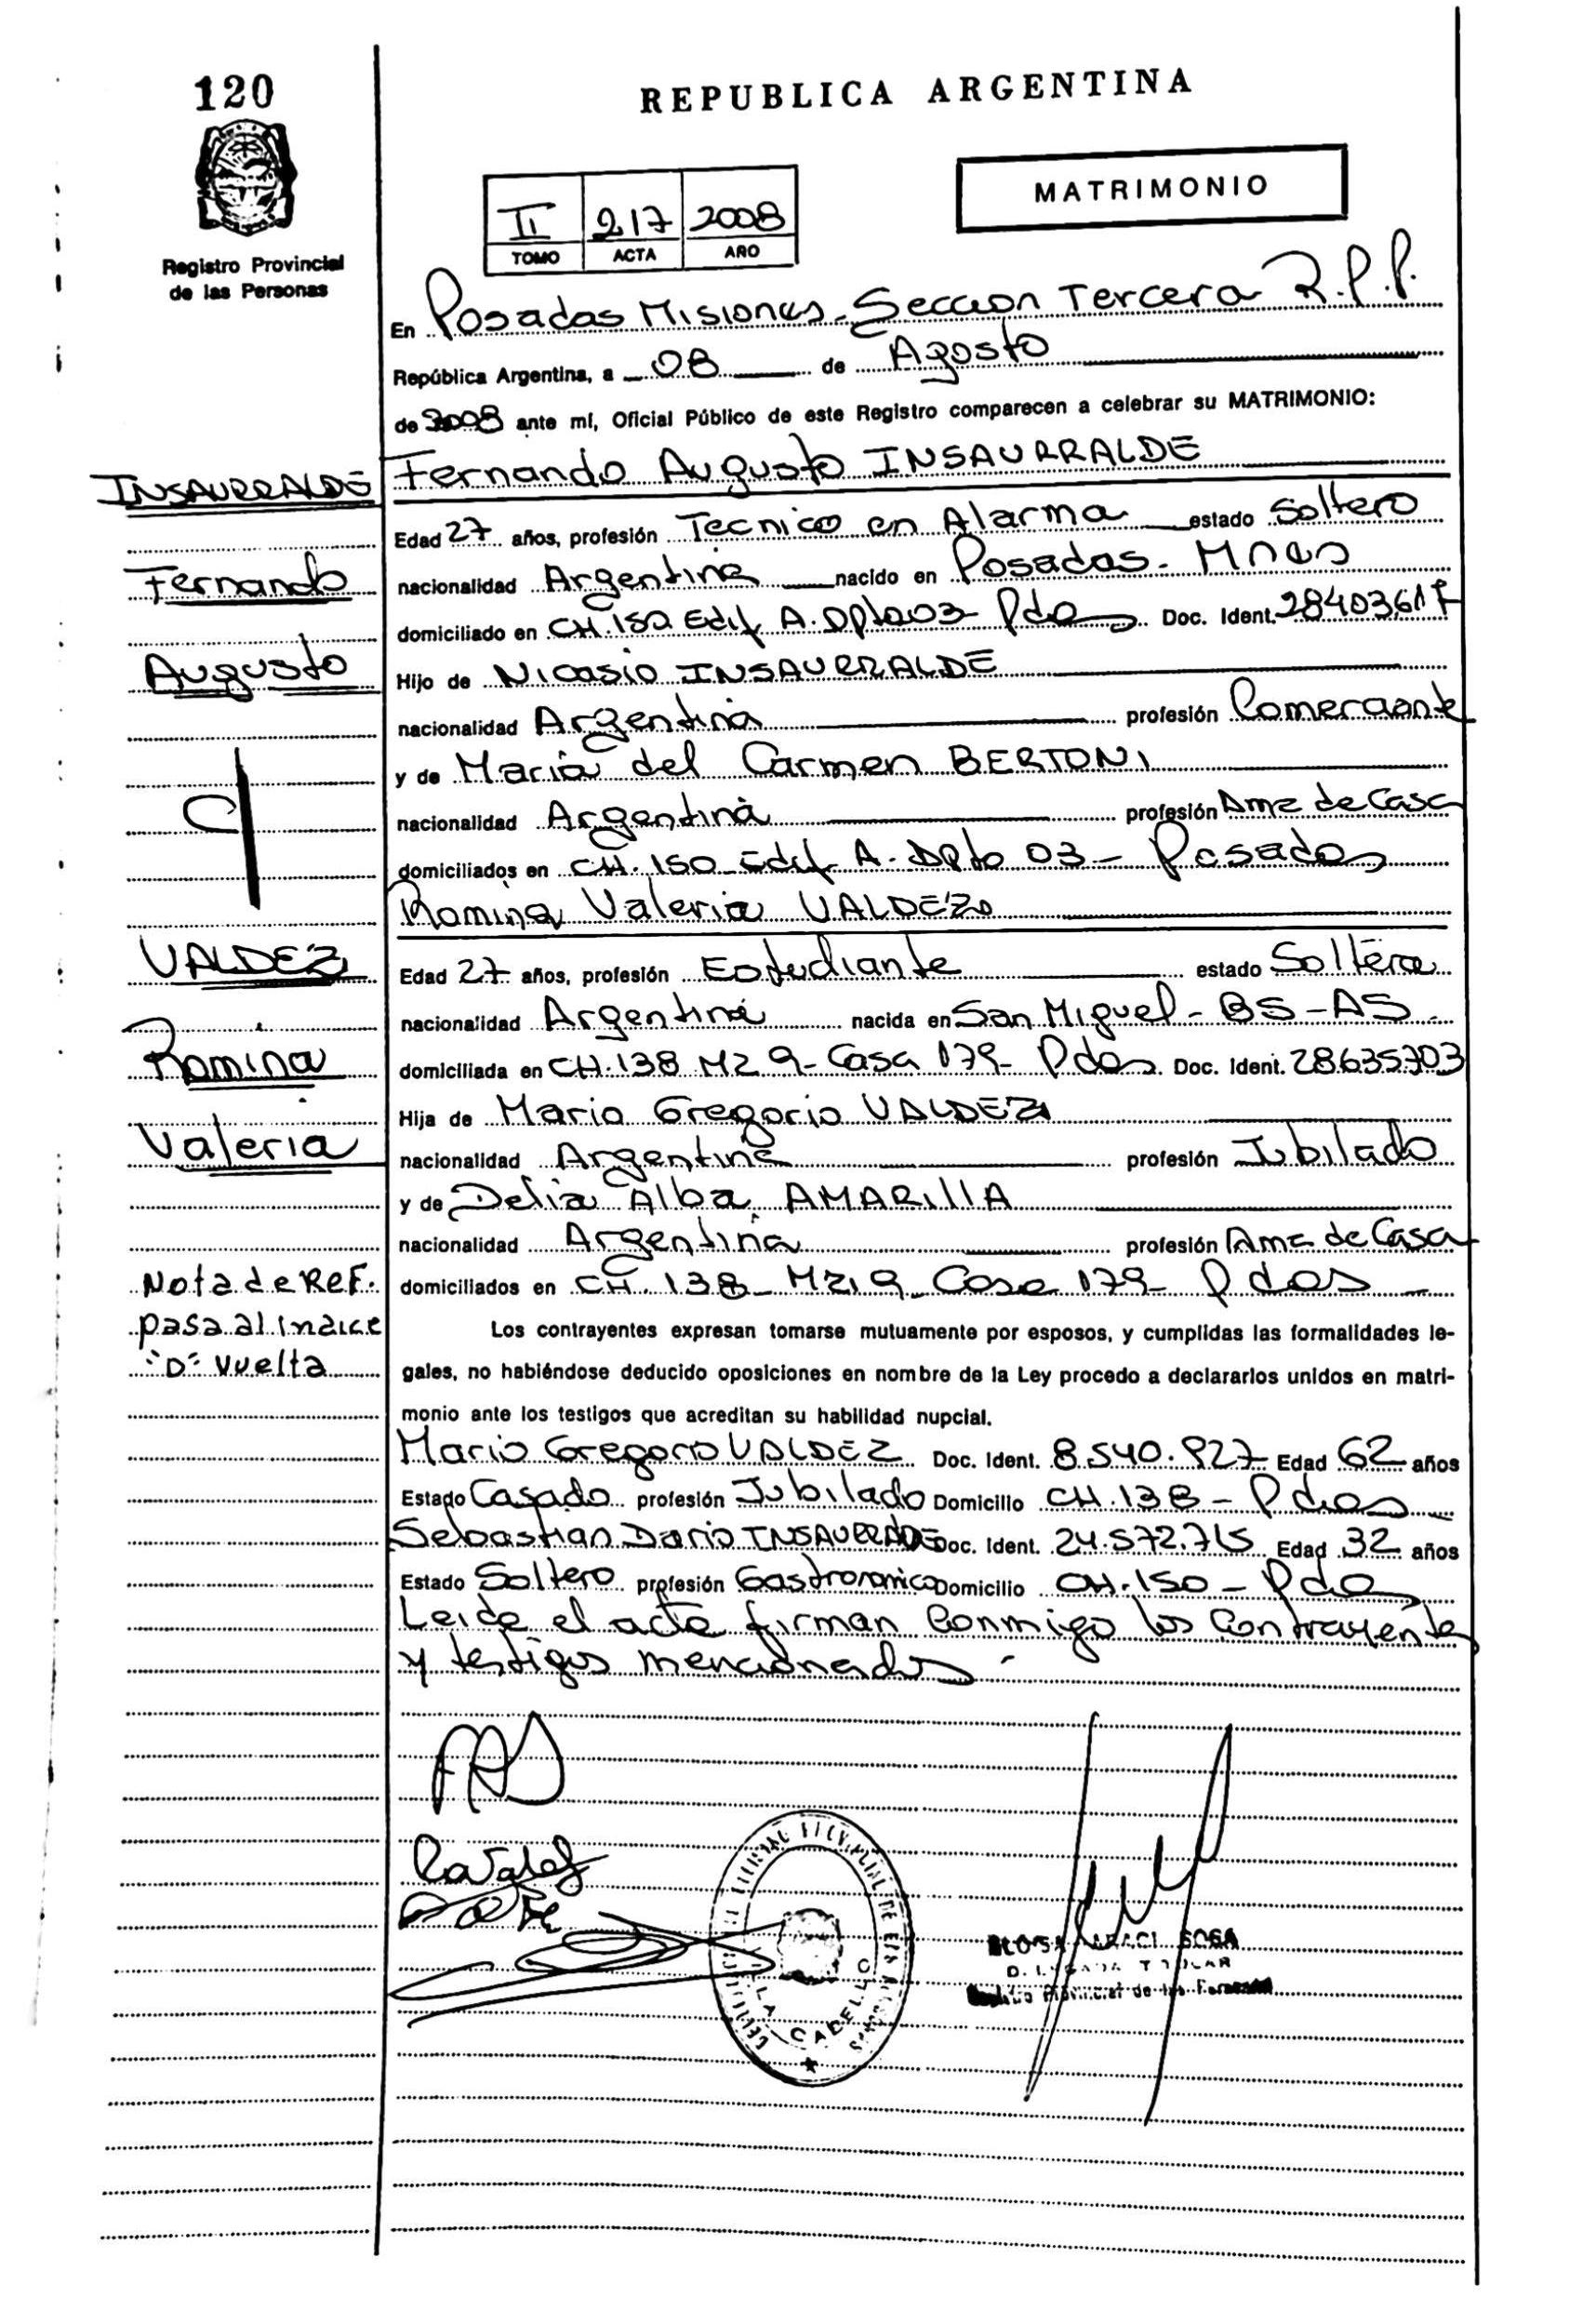 120
REPUBLICA ARGENTINA
MATRIMONIO
II 217 2008
TOMO ACTA AÑO
Registro Provincial
de las Personas
En Posadas Misiones. Seccion Tercera R.P.P.
República Argentina, a 08 de Agosto
de 2008 ante mí, Oficial Público de este Registro comparecen a celebrar su MATRIMONIO:
INSAURRALDE
Fernando
Augusto
Fernando Augusto INSAURRALDE
Edad 27 años, profesión Tecnico en Alarma estado Soltero
nacionalidad Argentina nacido en Posadas. Mnes
domiciliado en CH. 150 Edif A. Dpto 03 Pdas Doc. Ident. 28403617
Hijo de Nicasio INSAURRALDE
nacionalidad Argentina profesión Comerciante
y de Maria del Carmen BERTONI
nacionalidad Argentina profesión Ama de Casa
domiciliados en CH. 150 Edif A. Dpto 03 - Posadas
VALDEZ
Romina
Valeria
Romina Valeria VALDEZ
Edad 27 años, profesión Estudiante estado Soltera
nacionalidad Argentina nacida en San Miguel - BS-AS
domiciliada en CH. 138 MZ 9- Casa 179- Pdas Doc. Ident. 28635703
Hija de Mario Gregorio VALDEZ
nacionalidad Argentina profesión Jubilado
y de Delia Alba AMARILLA
nacionalidad Argentina profesión Ama de Casa
domiciliados en CH. 138 Mz. 9 Casa 179- Pdas
Nota de Ref.
pasa al indice
"D" vuelta
Los contrayentes expresan tomarse mutuamente por esposos, y cumplidas las formalidades le-
gales, no habiéndose deducido oposiciones en nombre de la Ley procedo a declararlos unidos en matri-
monio ante los testigos que acreditan su habilidad nupcial.
Mario Gregorio VALDEZ Doc. Ident. 8.540.927 Edad 62 años
Estado Casado profesión Jubilado Domicilio CH. 138 - Pdas
Sebastian Dario INSAURRALDE Doc. Ident. 24.572.715 Edad 32 años
Estado Soltero profesión Gastronomico Domicilio CH. 150 - Pdas
Leida el acta firman Conmigo los Contrayentes
y testigos mencionados
SOSA